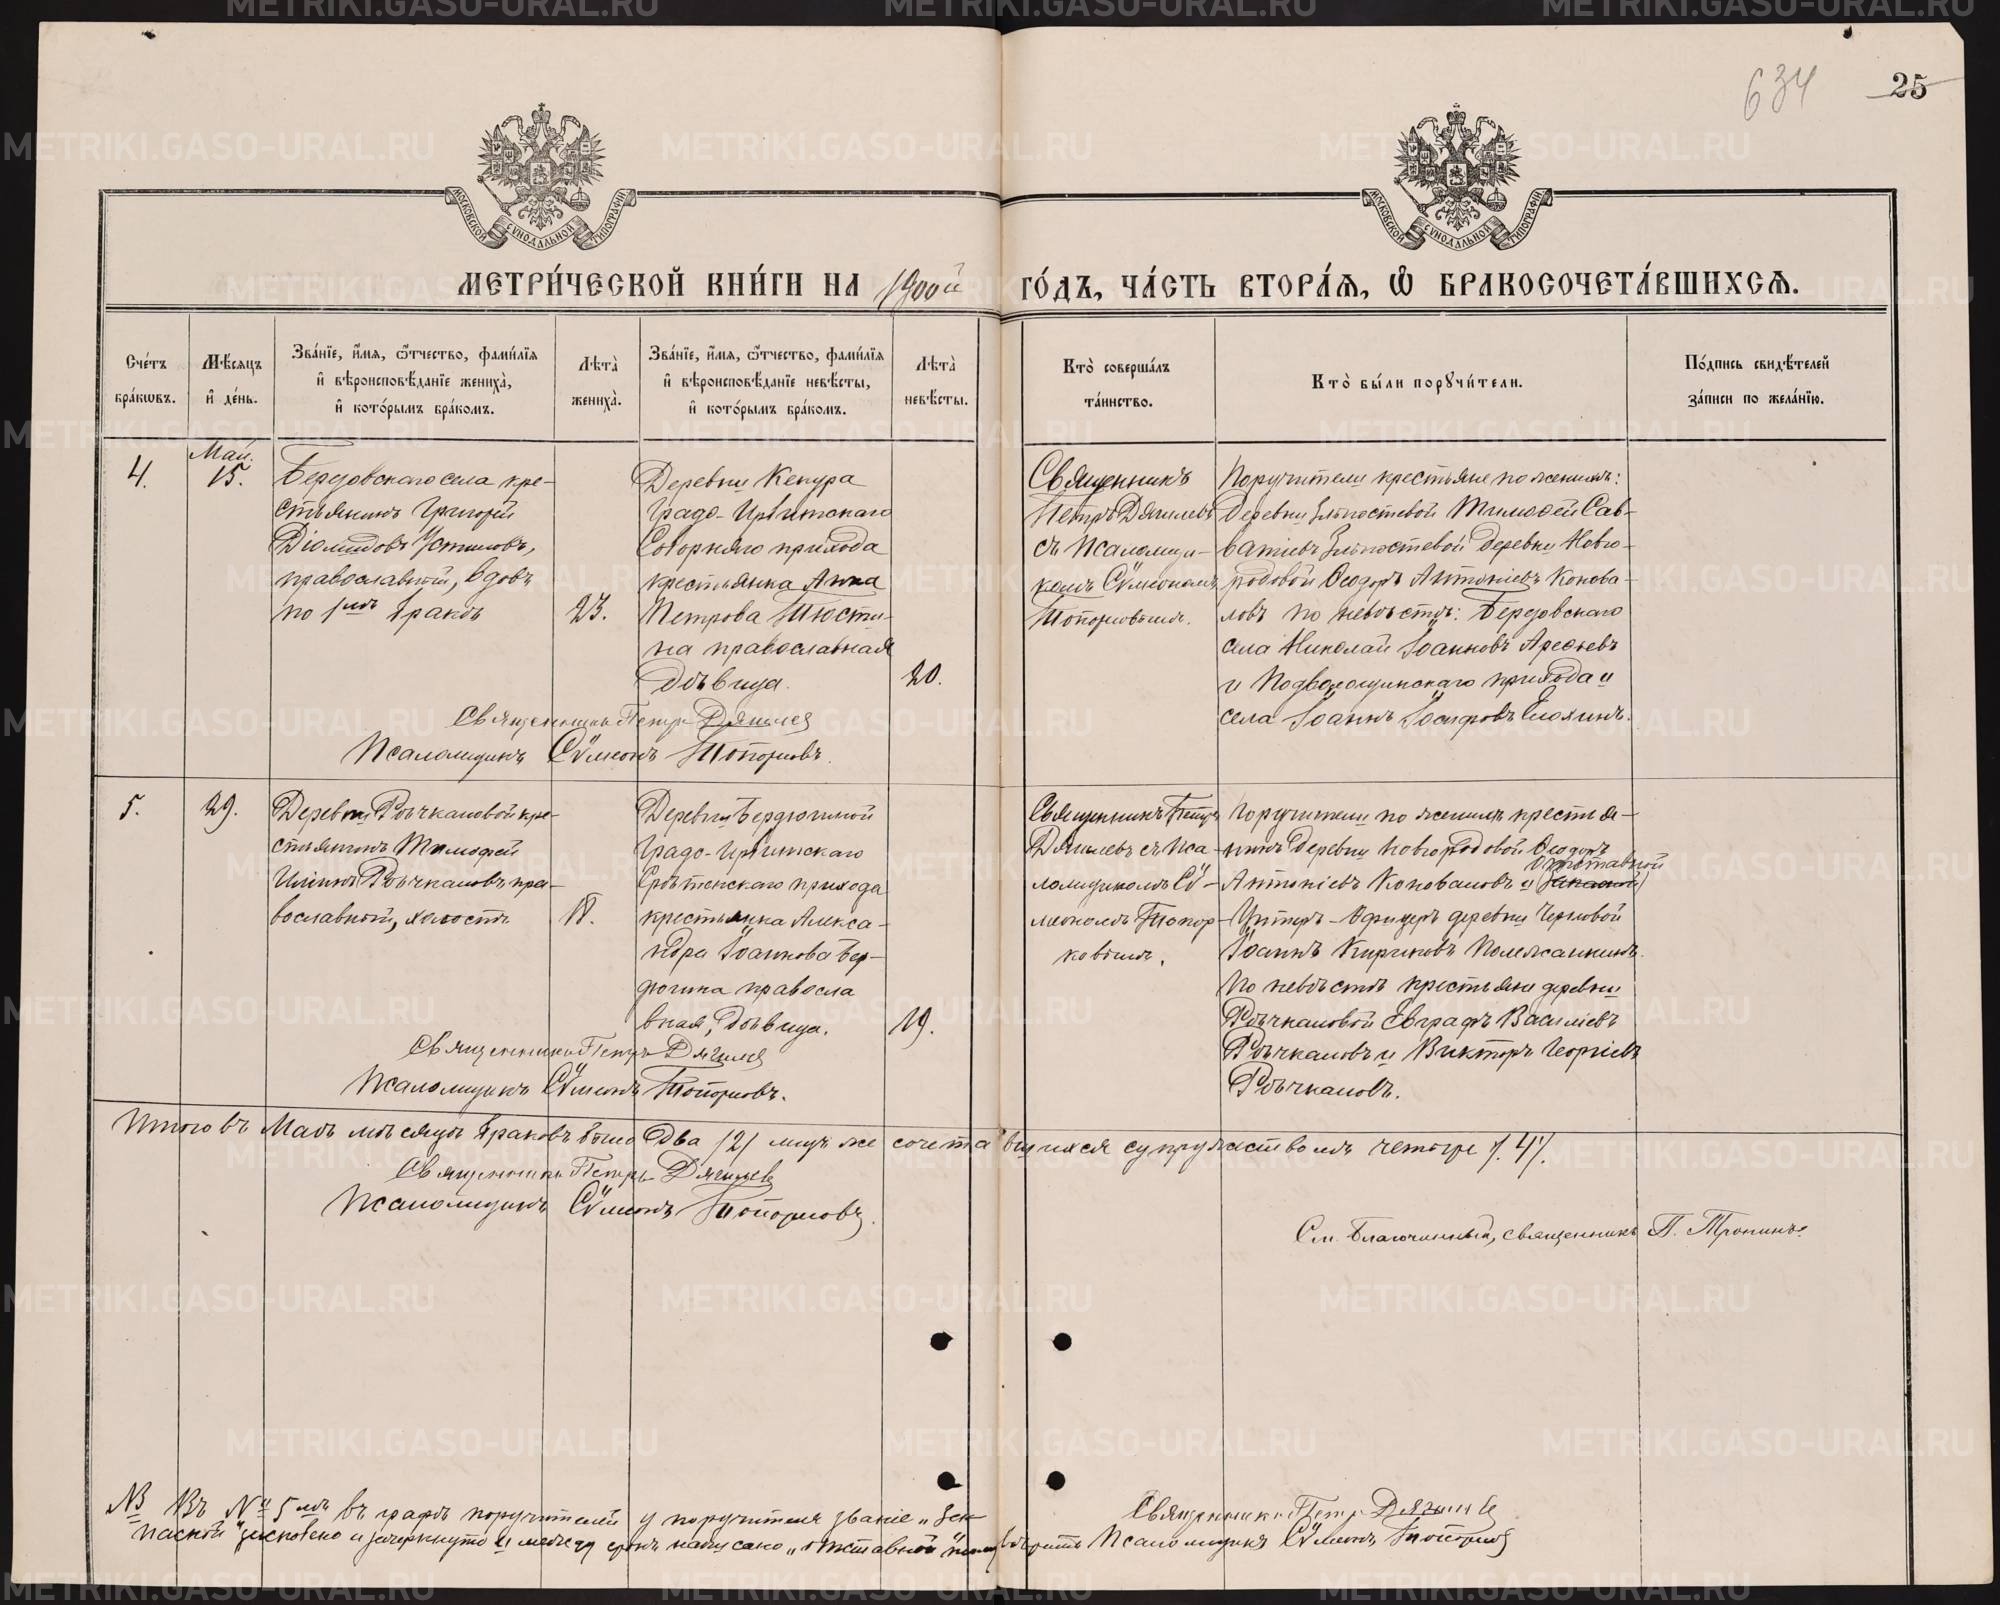 634
25
МОСКОВСКОЙ СѴНОДАЛЬНОЙ ТИПОГРАФІИ
МОСКОВСКОЙ СѴНОДАЛЬНОЙ ТИПОГРАФІИ
МЕТРИ́ЧЕСКОЙ КНИ́ГИ НА 1900й ГО́ДЪ, ЧА́СТЬ ВТОРА́Я, Ѡ҆ БРАКОСОЧЕТА́ВШИХСѦ.
Сче́тъ бра́кѡвъ.
Мѣ́сѧцъ и҆ де́нь.
Зва́нїе, и҆́мѧ, ѻ҆́тчество, фами́лїѧ и҆ вѣроисповѣ́данїе жениха̀, и҆ кото́рымъ бра́комъ.
Лѣта̀ жениха̀.
Зва́нїе, и҆́мѧ, ѻ҆́тчество, фами́лїѧ и҆ вѣроисповѣ́данїе невѣ́сты, и҆ кото́рымъ бра́комъ.
Лѣта̀ невѣ́сты.
Кто̀ соверша́лъ та́инство.
Кто̀ бы́ли порꙋчи́тели.
По́дпись свидѣ́телей за́писи по жела́нїю.
4.
Май.
15.
Бердовскаго села кре-
стьянинъ Григорій
Діомидовъ Устиновъ,
православный, вдовъ
по 1мъ бракѣ
23.
Деревни Кекура
Градо-Ирбитскаго
Соборнаго прихода
крестьянка Анна
Петрова Тюсти-
на православная
дѣвица.
20.
Священникъ
Петръ Дягилевъ
съ псаломщи-
комъ Сѵмеономъ
Топорковымъ.
Поручители крестьяне по женихѣ:
деревни Тимофей Сав-
ватіевъ деревни Новго-
родовой Ѳеодоръ Антоніевъ Конова-
ловъ по невѣстѣ: Бердовскаго
села Николай Іоанновъ Арефьевъ
и Подволошинскаго прихода и
села Іоаннъ Іосифовъ Елохинъ.
Священникъ Петръ Дягилев
Псаломщикъ Сѵмеонъ Топорковъ.
5.
29.
Деревни Рѣчкаловой кре-
стьянинъ Тимофей
Иліинъ Рѣчкаловъ пра-
вославный, холостъ
18.
Деревни Бердюгиной
Градо-Ирбитскаго
Срѣтенскаго прихода
крестьянка Алекса-
ндра Іоаннова Бер-
дюгина правосла
вная, дѣвица.
19.
Священникъ Петръ
Дягилевъ съ пса-
ломщикомъ Сѵ-
меономъ Топор-
ковымъ.
Поручители по женихѣ крестья-
нинъ деревни Новгородовой Ѳеодоръ
отставной
Антоніевъ Коноваловъ и (запасной)
Унтеръ-Офицеръ деревни Черновой
Іоаннъ Кириковъ Помежанкинъ.
По невѣстѣ крестьяне деревни
Рѣчкаловой Евграфъ Василіевъ
Рѣчкаловъ и Викторъ Георгіевъ
Рѣчкаловъ.
Священникъ Петръ Дягилев
Псаломщикъ Сѵмеонъ Топорковъ.
Итого въ Маѣ мѣсяцѣ браковъ было два /2/ лицъ же сочетавшихся супружествомъ четыре /.4/.
Священникъ Петръ Дягилев
Псаломщикъ Сѵмеонъ Топорковъ.
См. Благочинный, священникъ П. Тронинъ.
NB Въ № 5мъ въ графѣ поручителей у поручителя званіе „за-
пасной" зачеркнуто и между строкъ написано „отставной"
Священникъ Петръ Дягилев
Псаломщикъ Сѵмеонъ Топорков
METRIKI.GASO-URAL.RU